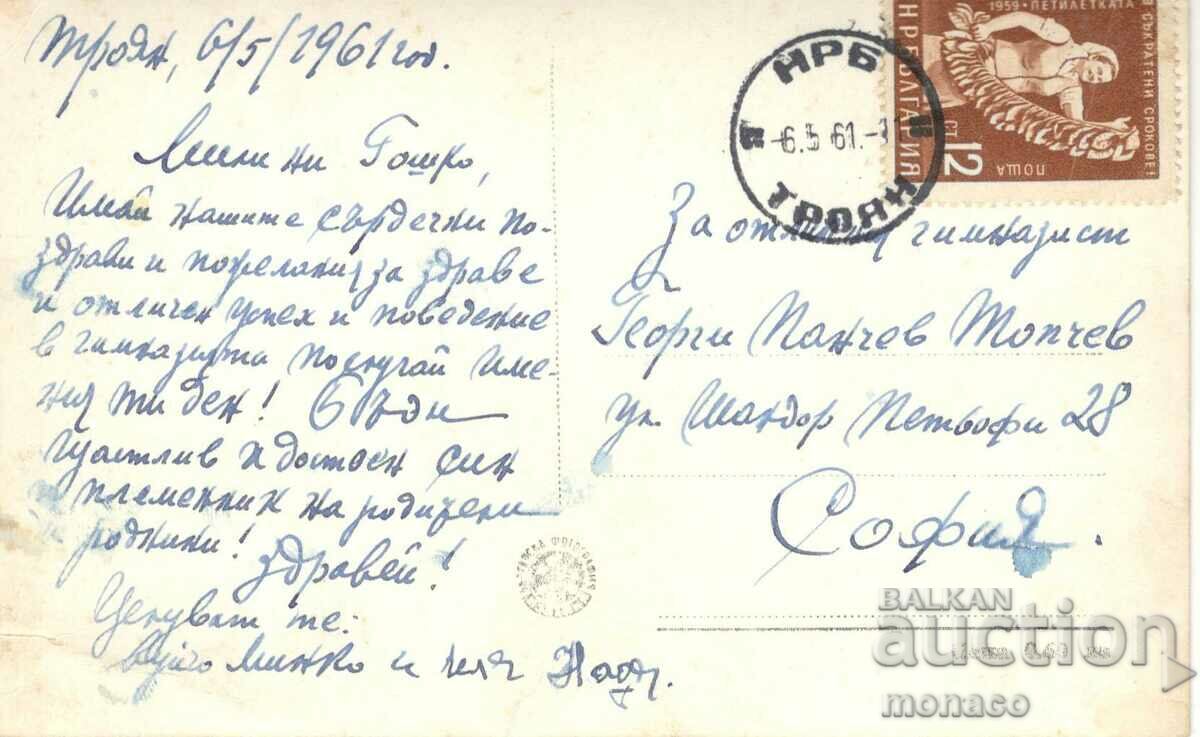 Троян, 6/5/1961 год.
Мили ни Гошко,
Имай нашите сърдечки по-
здрави и пожелания за здраве
и отличен успех и поведение
в гимназията по случай име-
ния ти ден! Бъди
щастлив и достоен син
племенник на родители
роднини!
Здравей!
Целуват те:
вуйчо Минко и
НРБ
-6.5.61.-
ТРОЯН
1959 • ПЕТИЛЕТКАТА
В СЪКРАТЕНИ СРОКОВЕ!
Н Р БЪЛГАРИЯ
12 СТ
ПОЩА
За отличния гимназист
Георги Панчев Топчев
ул. Шандор Петьофи 28
София.
БЪЛГАРСКА ФОТОГРАФИЯ
BALKAN
auction
monaco